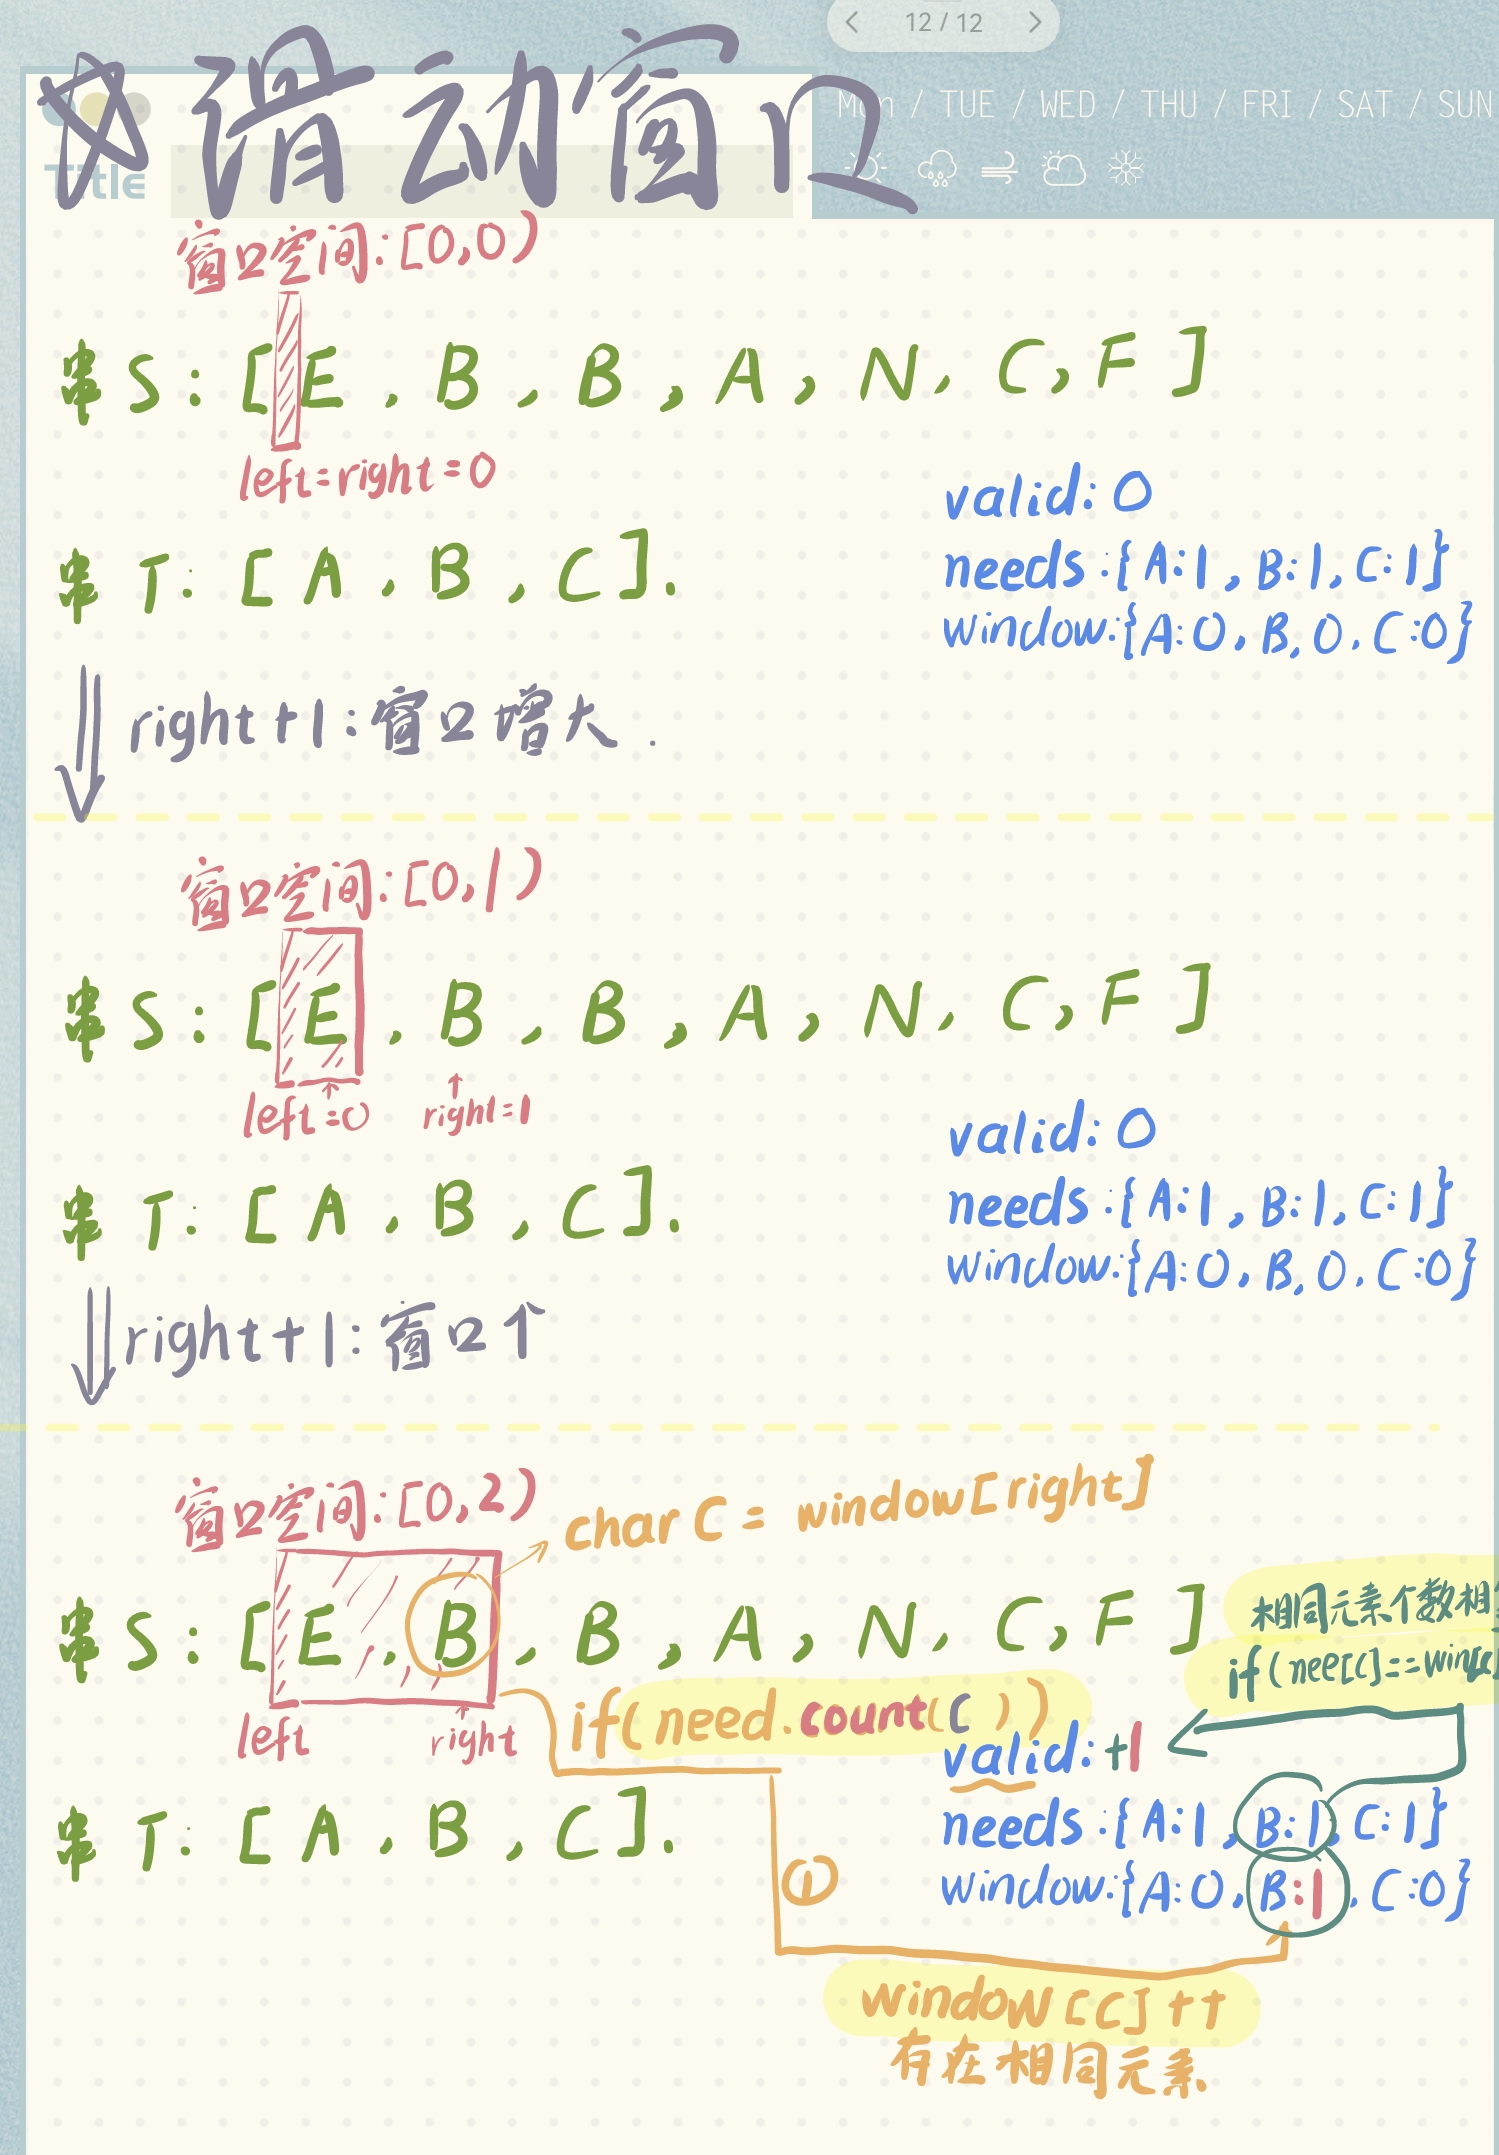 12 / 12
滑动窗口
Mon / TUE / WED / THU / FRI / SAT / SUN
Title
窗口空间:[0,0)
串 S: [E, B, B, A, N, C, F]
left=right=0
valid: 0
串 T: [A, B, C].
needs:{A:1, B:1, C:1}
window:{A:0, B, 0, C:0}
right+1:窗口增大.
窗口空间:[0,1)
串 S: [E, B, B, A, N, C, F]
left=0 right=1
valid: 0
串 T: [A, B, C].
needs:{A:1, B:1, C:1}
window:{A:0, B, 0, C:0}
right+1:窗口个
窗口空间:[0,2)
char C = window[right]
相同元素个数相
串 S: [E, B, B, A, N, C, F]
if(nee[c]==win[c
left right
if(need.count(C))
valid:+1
串 T: [A, B, C].
needs:{A:1, B:1, C:1}
①
window:{A:0, B:1, C:0}
window[C]++
存在相同元素